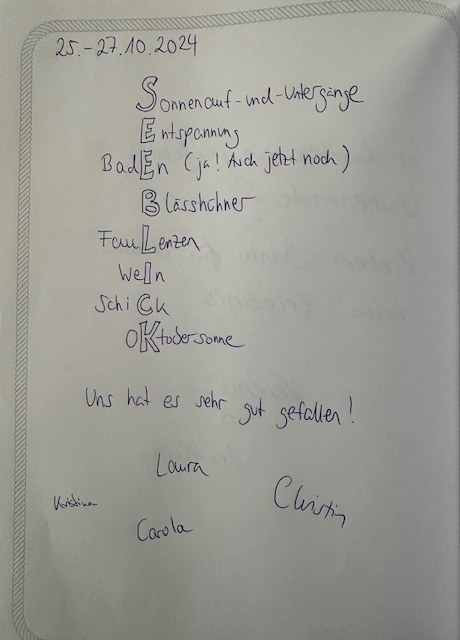 25.-27.10.2024
Sonnenauf-und-Untergänge
Entspannung
BadEn (ja! Auch jetzt noch)
Blässhühner
FauLenzen
WeIn
SchiCk
OKtobersonne
Uns hat es sehr gut gefallen!
Laura
Kristina
Christin
Carola